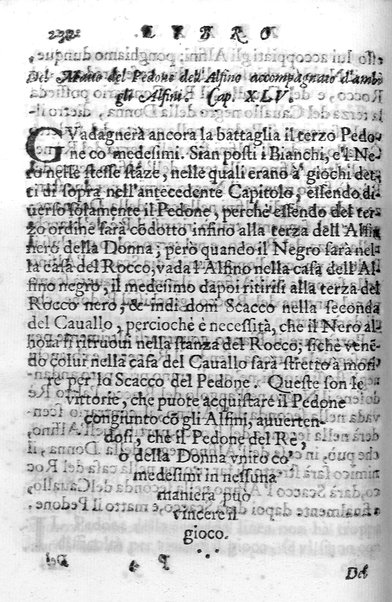 232 LIBRO
Del Matto del Pedone dell'Alfino accompagnato d'ambi
gli Alfini. Cap. XLV.
GVadagnerà ancora la battaglia il terzo Pedo-
ne cō medesimi. Sian posti i Bianchi, e'l Ne-
ro nelle stesse stāze, nelle quali erano a' giochi det-
ti di sopra nell'antecedente Capitolo, essendo di-
uerso solamente il Pedone, perche essendo del ter-
zo ordine sarà cōdotto infino alla terza dell'Alfin
nero della Donna; però quando il Negro sarà nel-
la casa del Rocco, vada l'Alfino nella casa dell'Al-
fino negro, il medesimo dapoi ritirisi alla terza del
Rocco nero, & indi doni Scacco nella seconda
del Cauallo, percioche è necessità, che il Nero al-
hora si ritruoui nella stanza del Rocco; siche venē-
do colui nella casa del Cauallo sarà stretto a mori
re per lo Scacco del Pedone. Queste son le
vittorie, che puote acquistare il Pedone
congiunto cō gli Alfini, auuerten-
dosi, che il Pedone del Re,
o della Donna vnito co'
medesimi in nessuna
maniera può
vincere il
gioco.
Del